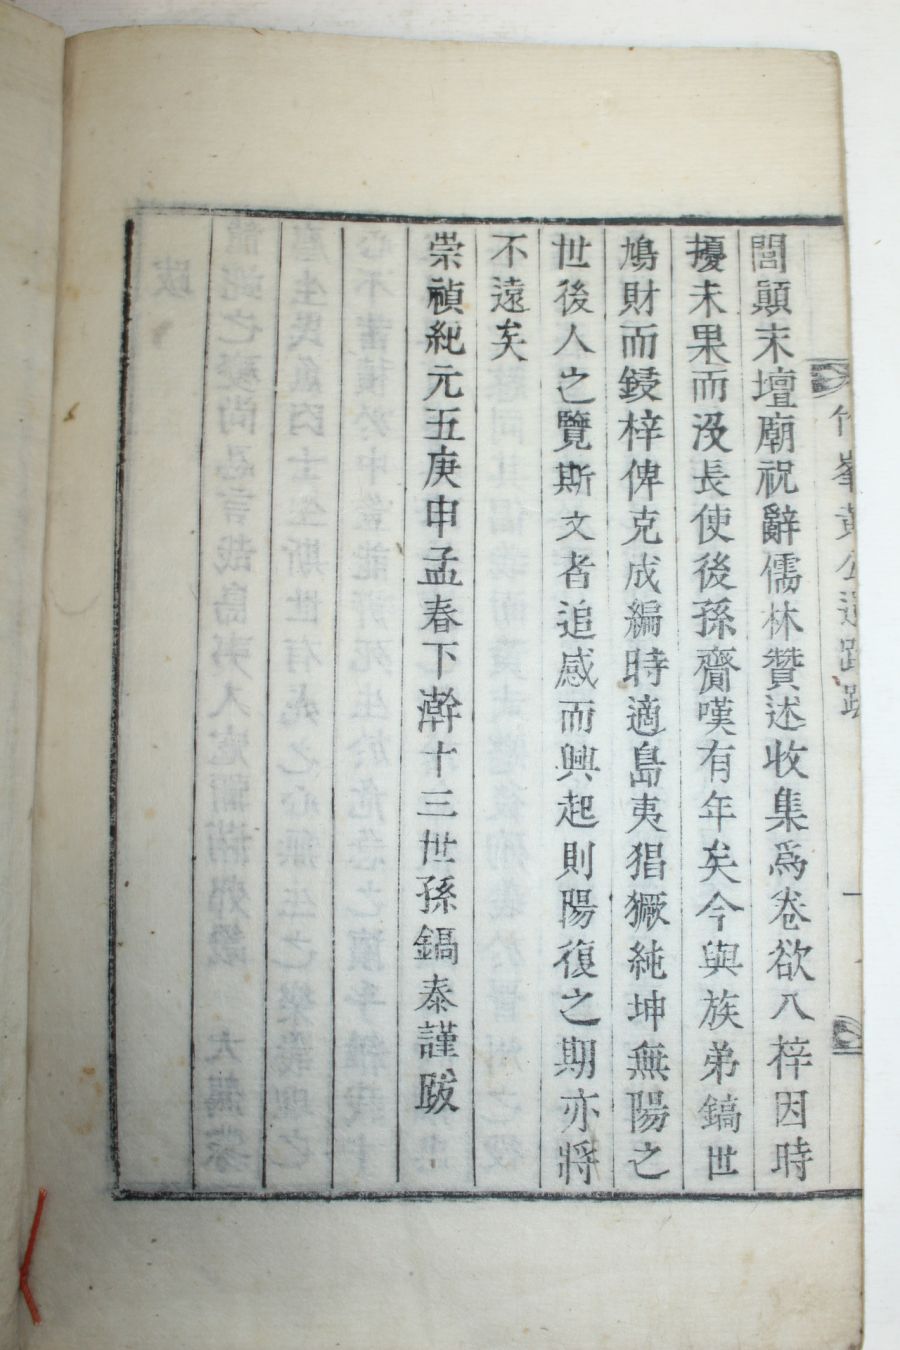 竹峯黃公遺蹟跋 一
閭顛末壇廟祝辭儒林贊述收集爲卷欲入梓因時
擾未果而沒長使後孫齎嘆有年矣今與族弟鎬世
鳩財而鋟梓俾克成編時適島夷猖獗純坤無陽之
世後人之覽斯文者追感而興起則陽復之期亦將
不遠矣
崇禎紀元五庚申孟春下澣十三世孫鎬泰謹跋